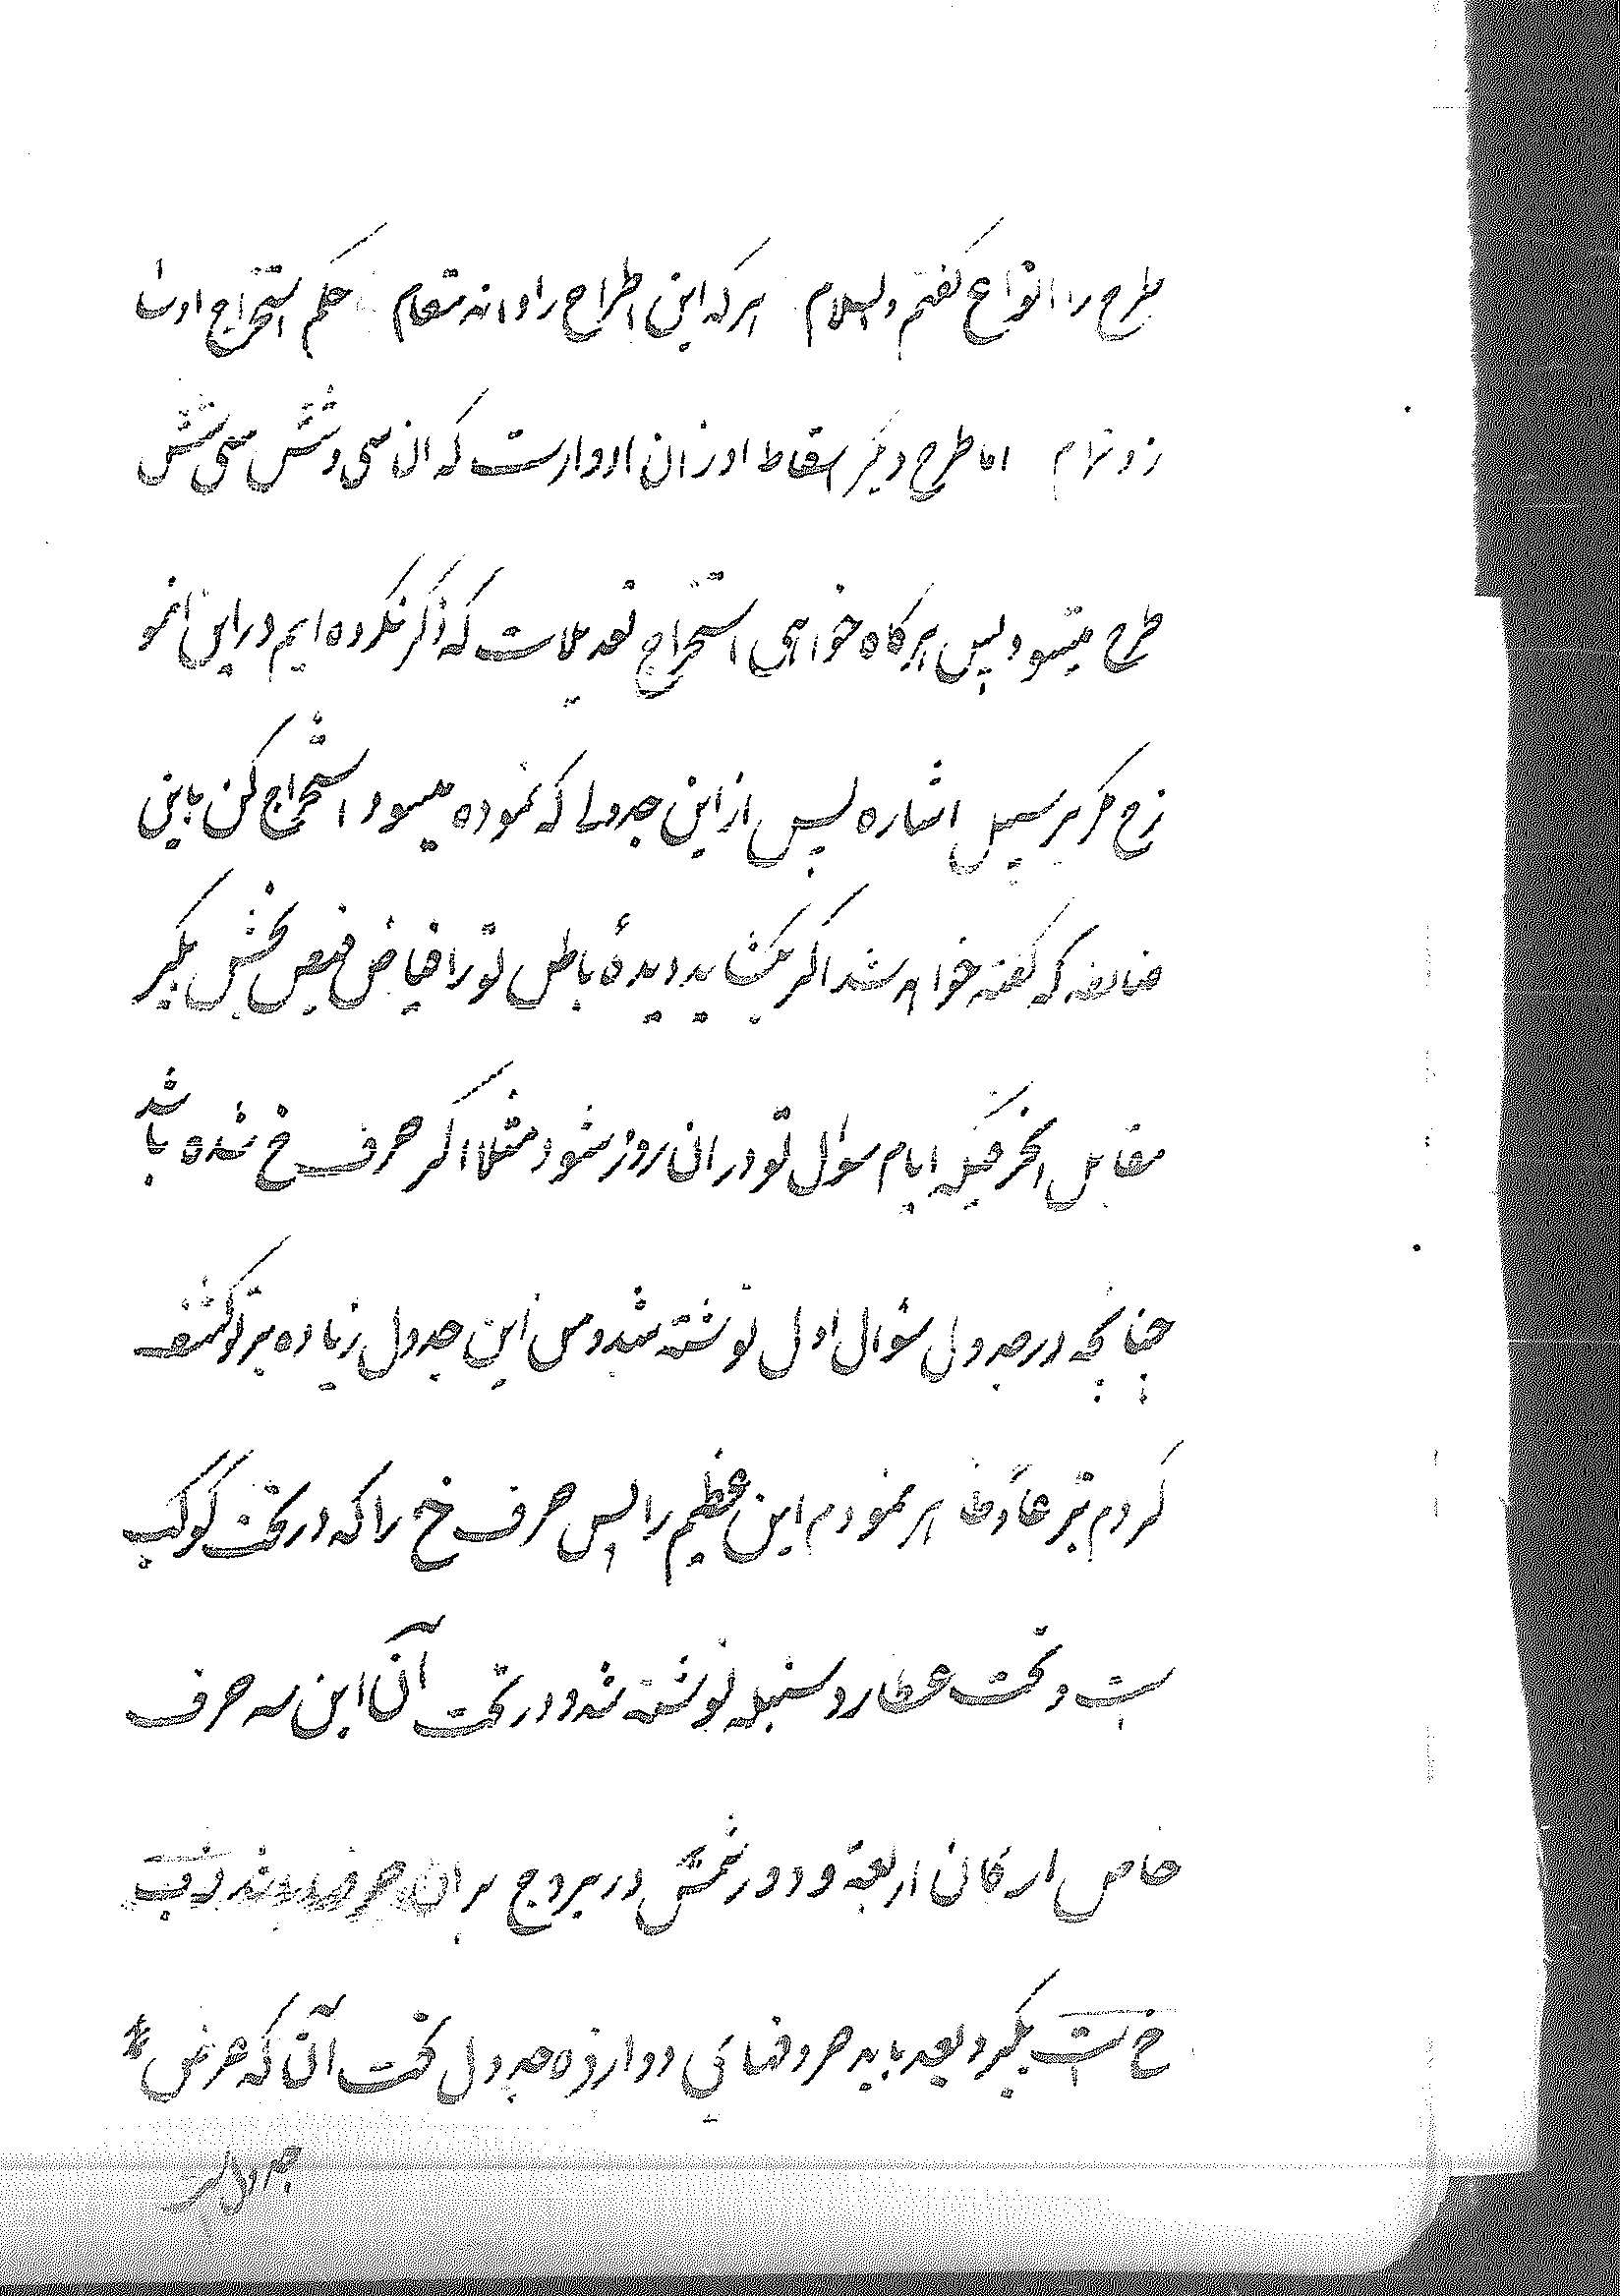 طرح را انواع گفتم والسلام هر که این اطراح را داند مقام حکم استخراج او را
زو تمام اما طرح دیگر اسقاط اوزان ادوارست که ان سی و شش سی شش
طرح میشود پس هرگاه خواهی استخراج تعدیلات که ذکر نکرده ایم در این
بر سبیل اشاره پس از این جدولی که نموده میشود استخراج کن باین
ضابطه که گفته خواهد شد اگر بگشاید دیدهٔ باطن تو را فیاض فیض بخش بگیر
مقابل ایام سؤال تو در ان روز شود مثلا اگر حرف خ شده باشد
چنانچه در جدول سؤال اول نوشته شد و من این جدول زیاده بر تو کشف
کردم ظاهر نمودم این عظیم را پس حرف خ را که در تحت کوکب
است و تحت عطارد و سنبله نوشته شد و در تحت آن این سه حرف
خاص ارکان اربعة و دور شمس در بروج بر ان
خ است بگیر و بعد باید حروفهائی دوازده جدول تحت آن که عرض
جدول است